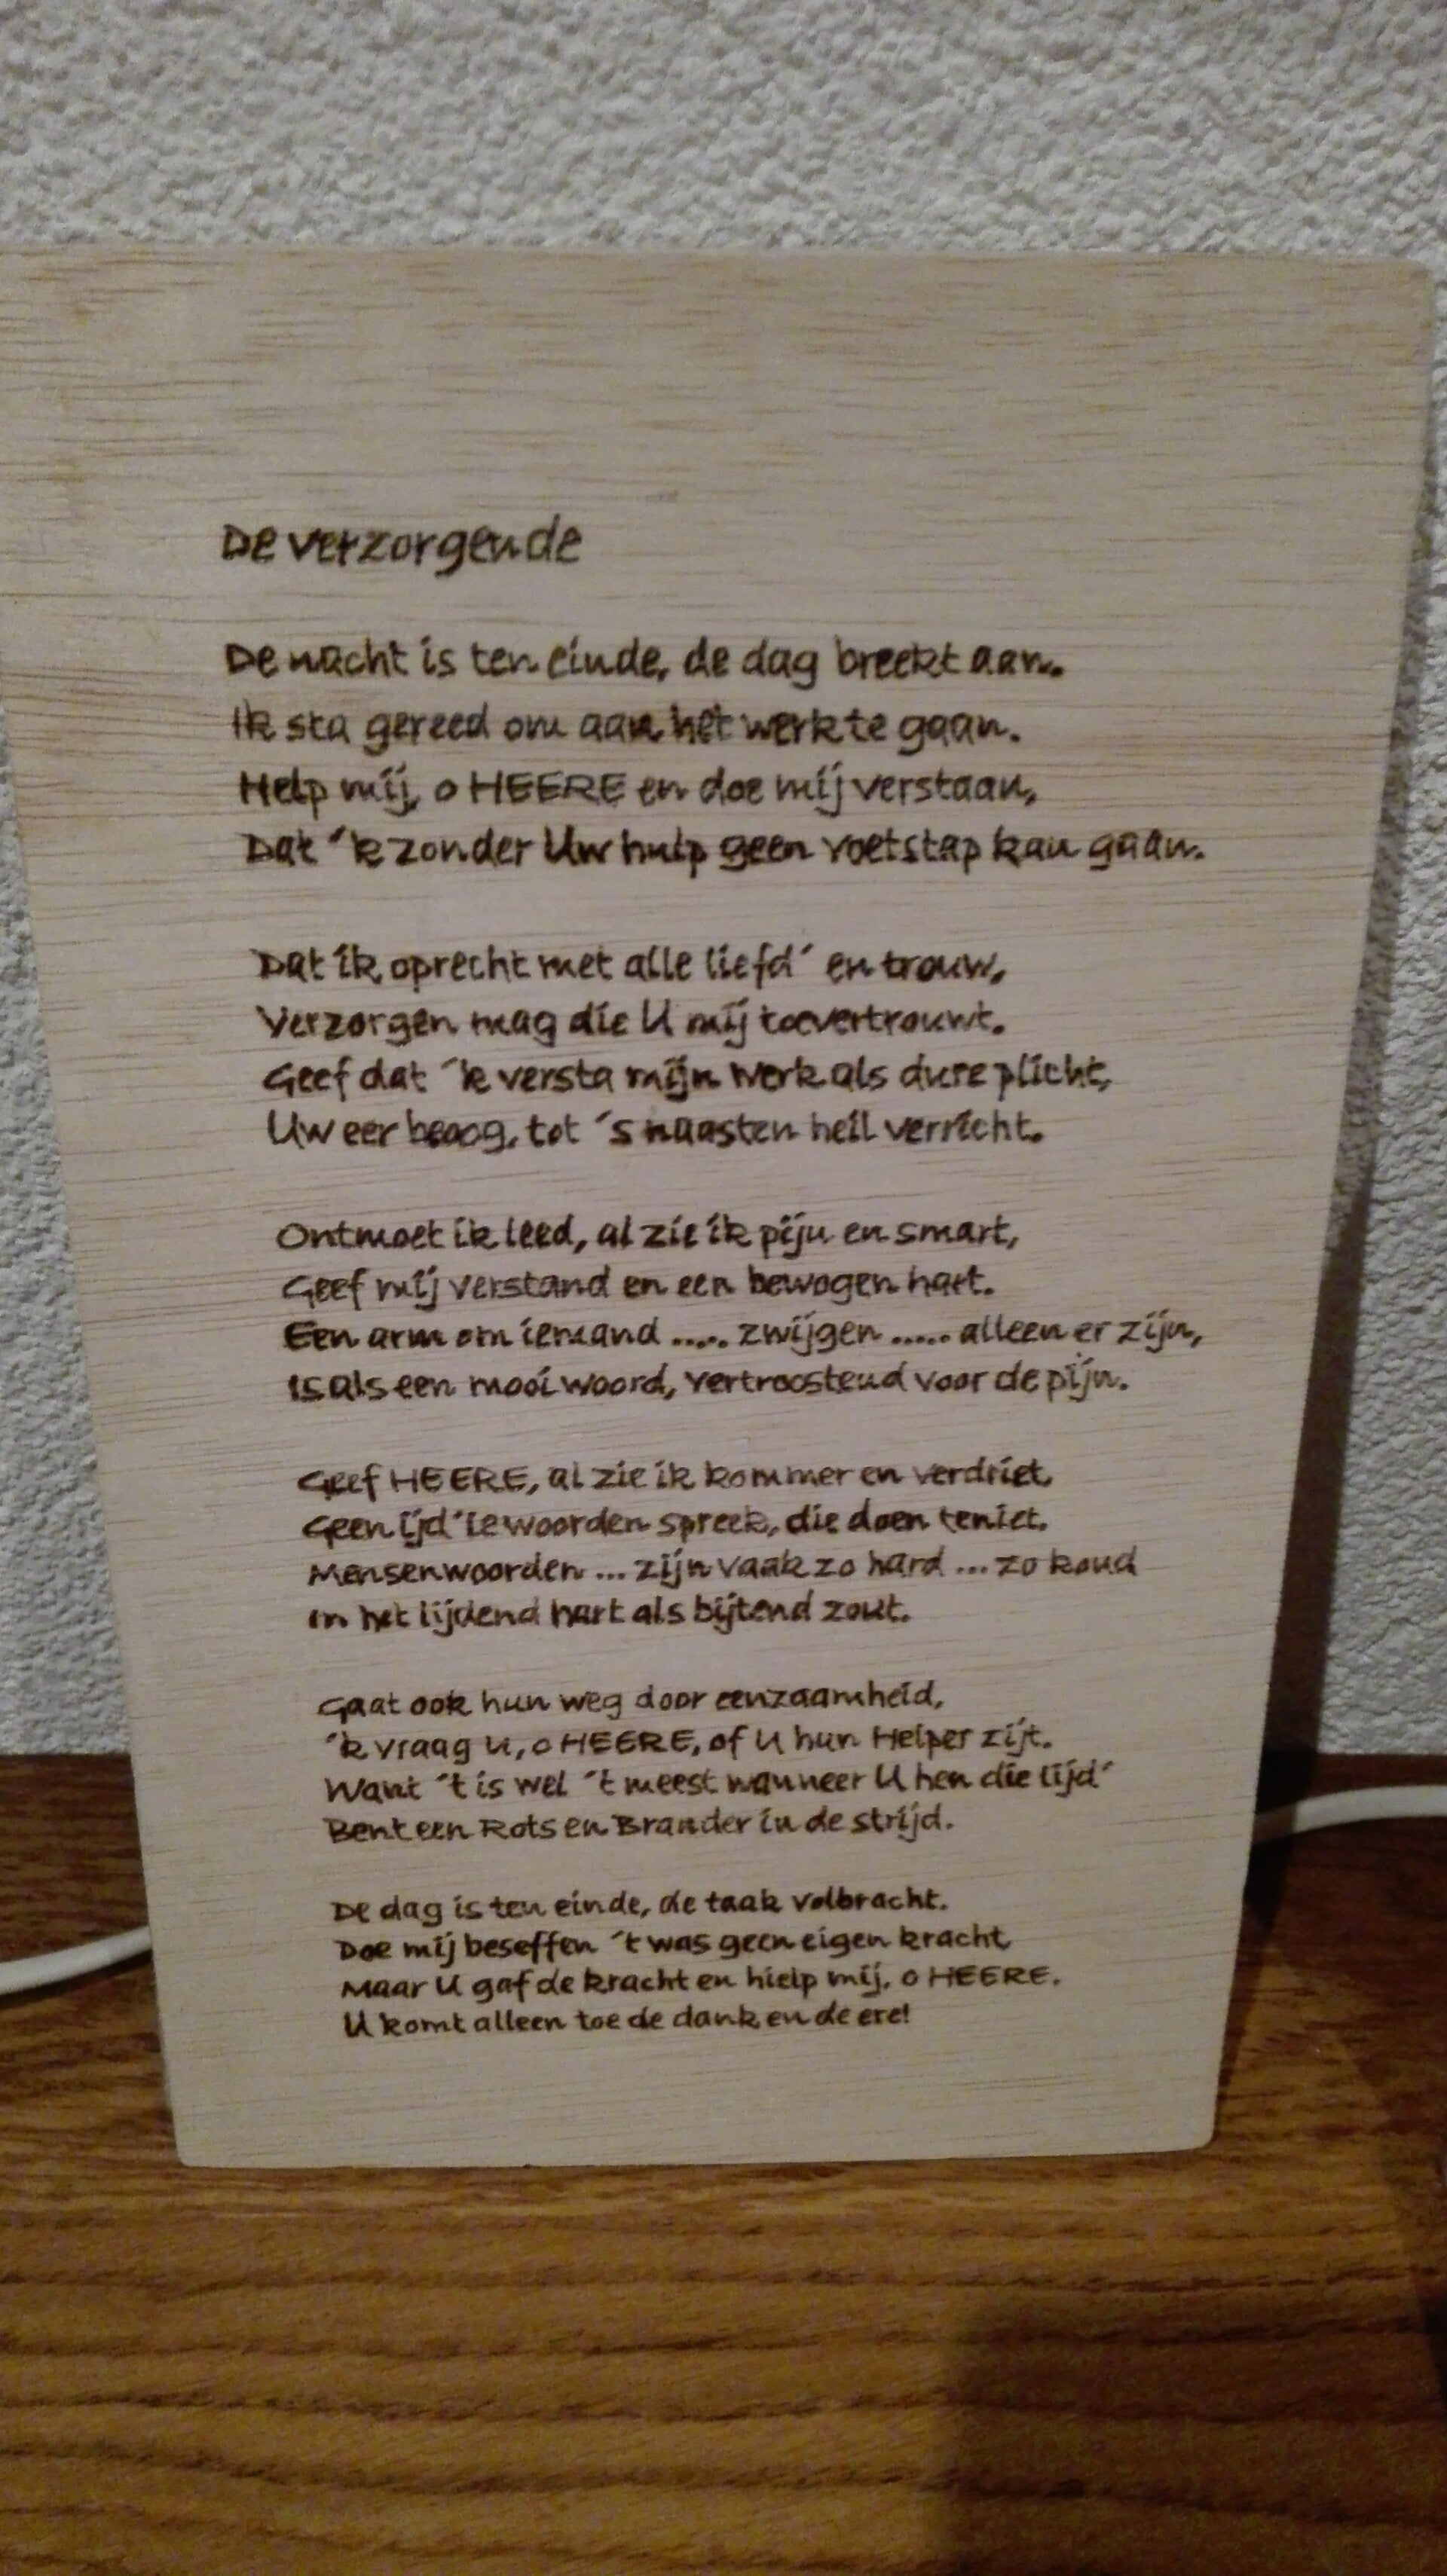 De verzorgende
De nacht is ten einde, de dag breekt aan.
Ik sta gereed om aan het werk te gaan.
Help mij, o HEERE en doe mij verstaan,
Dat ´k zonder Uw hulp geen voetstap kan gaan.
Dat ik oprecht met alle liefd´ en trouw,
Verzorgen mag die U mij toevertrouwt.
Geef dat ´k versta mijn werk als dure plicht,
Uw eer beoog, tot ´s naasten heil verricht.
Ontmoet ik leed, al zie ik pijn en smart,
Geef mij verstand en een bewogen hart.
Een arm om iemand ..... zwijgen ..... alleen er zijn,
Is als een mooi woord, vertroostend voor de pijn.
Geef HEERE, al zie ik kommer en verdriet,
Geen ijd´le woorden spreek, die doen teniet.
Mensenwoorden ... zijn vaak zo hard ... zo koud
In het lijdend hart als bijtend zout.
Gaat ook hun weg door eenzaamheid,
´k vraag U, o HEERE, of U hun Helper zijt.
Want ´t is wel ´t meest wanneer U hen die lijd´
Bent een Rots en Brander in de strijd.
De dag is ten einde, de taak volbracht.
Doe mij beseffen ´t was geen eigen kracht
Maar U gaf de kracht en hielp mij, o HEERE.
U komt alleen toe de dank en de ere!